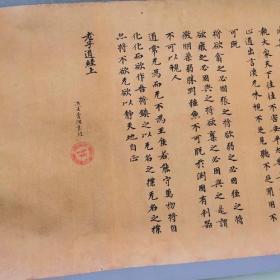 執大象天下往往不害安平太樂
心道出言淡无味視不足見聽不足聞用不
可既
將欲翕之必固張之將欲弱之必固強之將
欲廢之必固興之將欲奪之必固與之是謂
微明柔弱勝剛強魚不可脫於淵國有利器
不可以視人
道常无為而无不為王侯若能守萬物將自
化化而欲作吾將鎮之以无名之樸无名之樸
亦將不欲无欲以靜天地自正
老子道經上